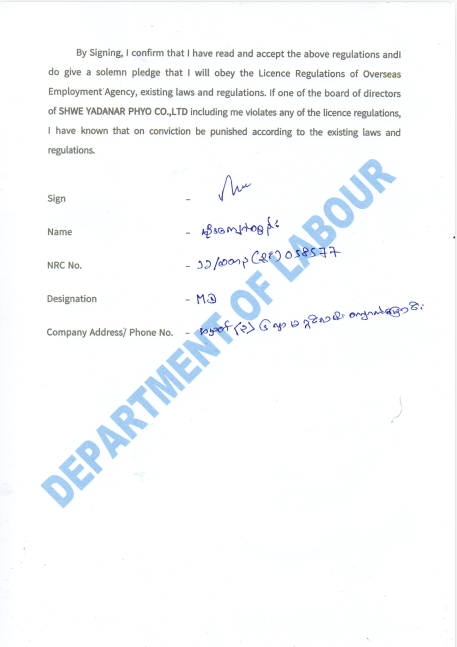 By Signing, I confirm that I have read and accept the above regulations andI
do give a solemn pledge that I will obey the Licence Regulations of Overseas
Employment Agency, existing laws and regulations. If one of the board of directors
of SHWE YADANAR PHYO CO.,LTD including me violates any of the licence regulations,
I have known that on conviction be punished according to the existing laws and
regulations.
Sign -
Name -
NRC No. - 058577
Designation - MD
Company Address/ Phone No. -
DEPARTMENT OF LABOUR